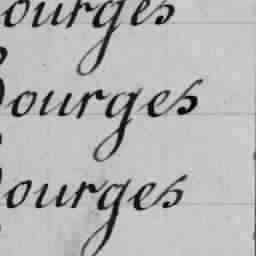 ourges
ourges
ourges